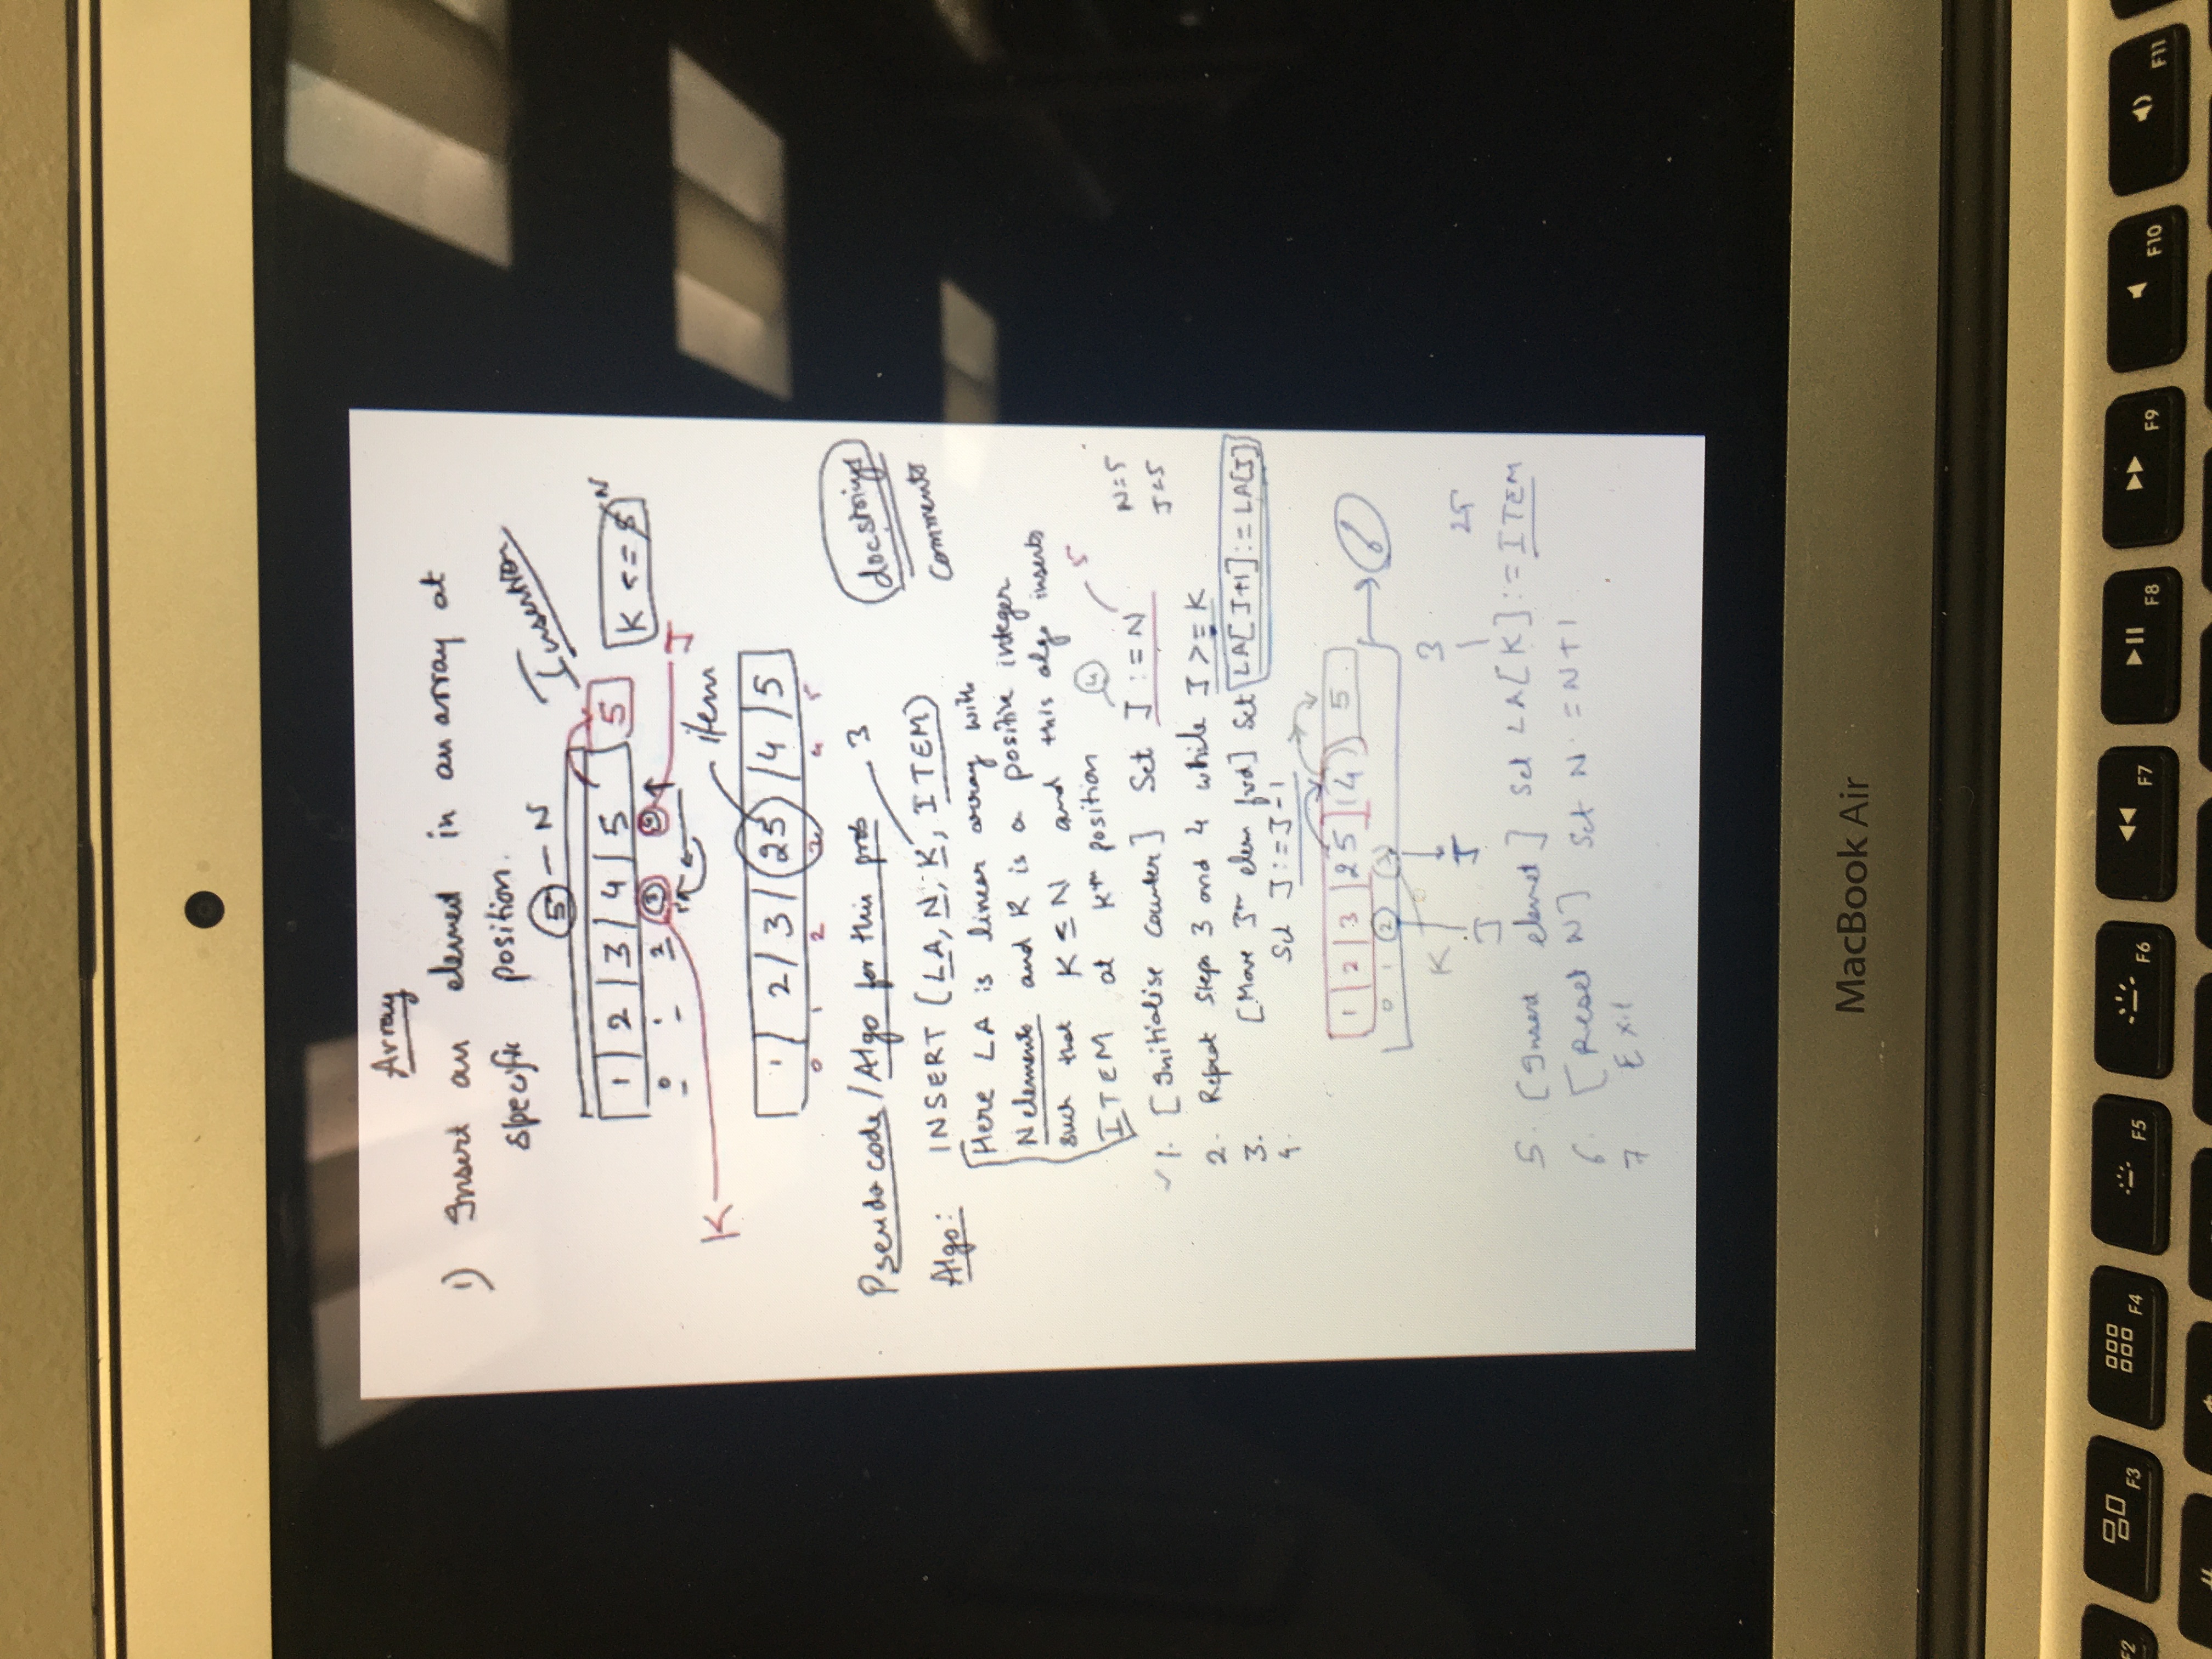 Array
1) Insert an element in an array at
specific position.
5 - N
Insertion
1 2 3 4 5 5
K <= 5 N
0 1 2 3 4
K
J
item
1 2 3 25 4 5
0 1 2 3 4 5
Pseudo code / Algo for this prob
3
docstrings
comments
Algo: INSERT (LA, N, K, ITEM)
Here LA is linear array with
N elements and K is a positive integer
such that K ≤ N and this algo inserts
ITEM at Kth position
4 5
1. [Initialise Counter] Set J := N
N=5
J=5
2. Repeat Steps 3 and 4 while J >= K
3. [Move Jth elem fwd] Set LA[J+1] := LA[J]
4. Set J := J-1
1 2 3 25 4 5
6
0 1 2 3
K
J
J
3
25
5. [Insert elemet] Set LA[K] := ITEM
6. [Reset N] Set N = N+1
7 Exit
MacBook Air
F2 F3 F4 F5 F6 F7 F8 F9 F10 F11
#